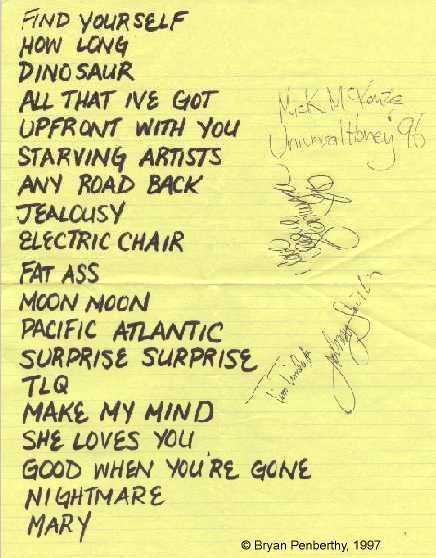 FIND YOURSELF
HOW LONG
DINOSAUR
ALL THAT IVE GOT
UPFRONT WITH YOU
STARVING ARTISTS
ANY ROAD BACK
JEALOUSY
ELECTRIC CHAIR
FAT ASS
MOON MOON
PACIFIC ATLANTIC
SURPRISE SURPRISE
TLQ
MAKE MY MIND
SHE LOVES YOU
GOOD WHEN YOU'RE GONE
NIGHTMARE
MARY
Mick McKenzie
Universal Honey '96
© Bryan Penberthy, 1997